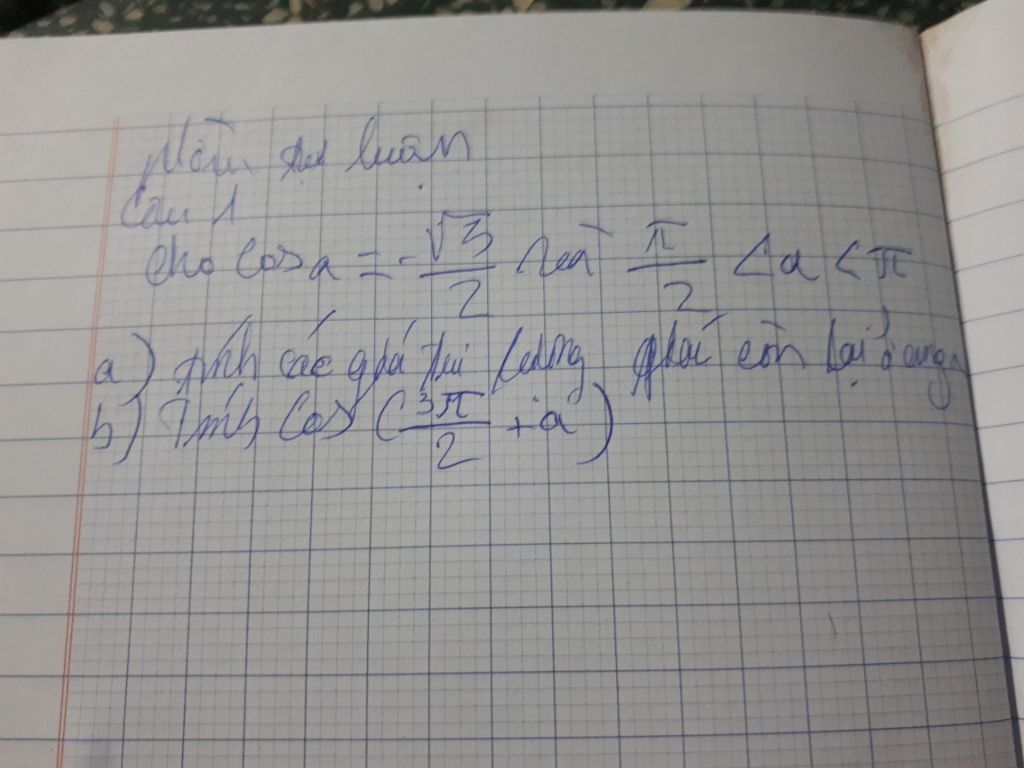 Phần tự luận
Câu 1
cho cos a = - √3/2 và π/2 < a < π
a) tính các giá trị lượng giác còn lại của cung
b) Tính cos (3π/2 + a)